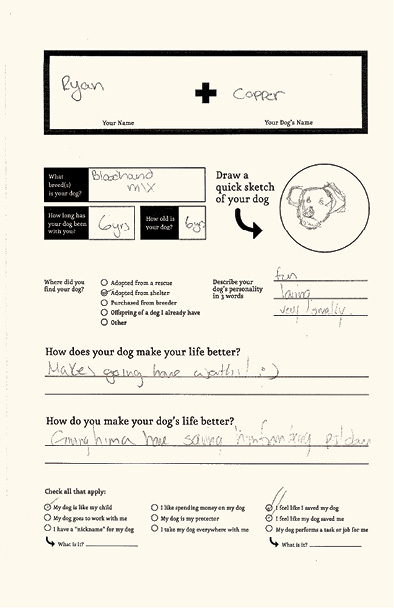 Ryan + Copper
Your Name Your Dog's Name
What breed(s) is your dog? Bloodhound mix
Draw a quick sketch of your dog
How long has your dog been with you? 6yrs How old is your dog? 6yrs
Where did you find your dog?
Adopted from a rescue
Adopted from shelter
Purchased from breeder
Offspring of a dog I already have
Other
Describe your dog's personality in 3 words
fun
loving
very smelly.
How does your dog make your life better?
Makes going home worth it! :)
How do you make your dog's life better?
Giving him a home saving him from being
Check all that apply:
My dog is like my child
My dog goes to work with me
I have a "nickname" for my dog
What is it?
I like spending money on my dog
My dog is my protector
I take my dog everywhere with me
I feel like I saved my dog
I feel like my dog saved me
My dog performs a task or job for me
What is it?